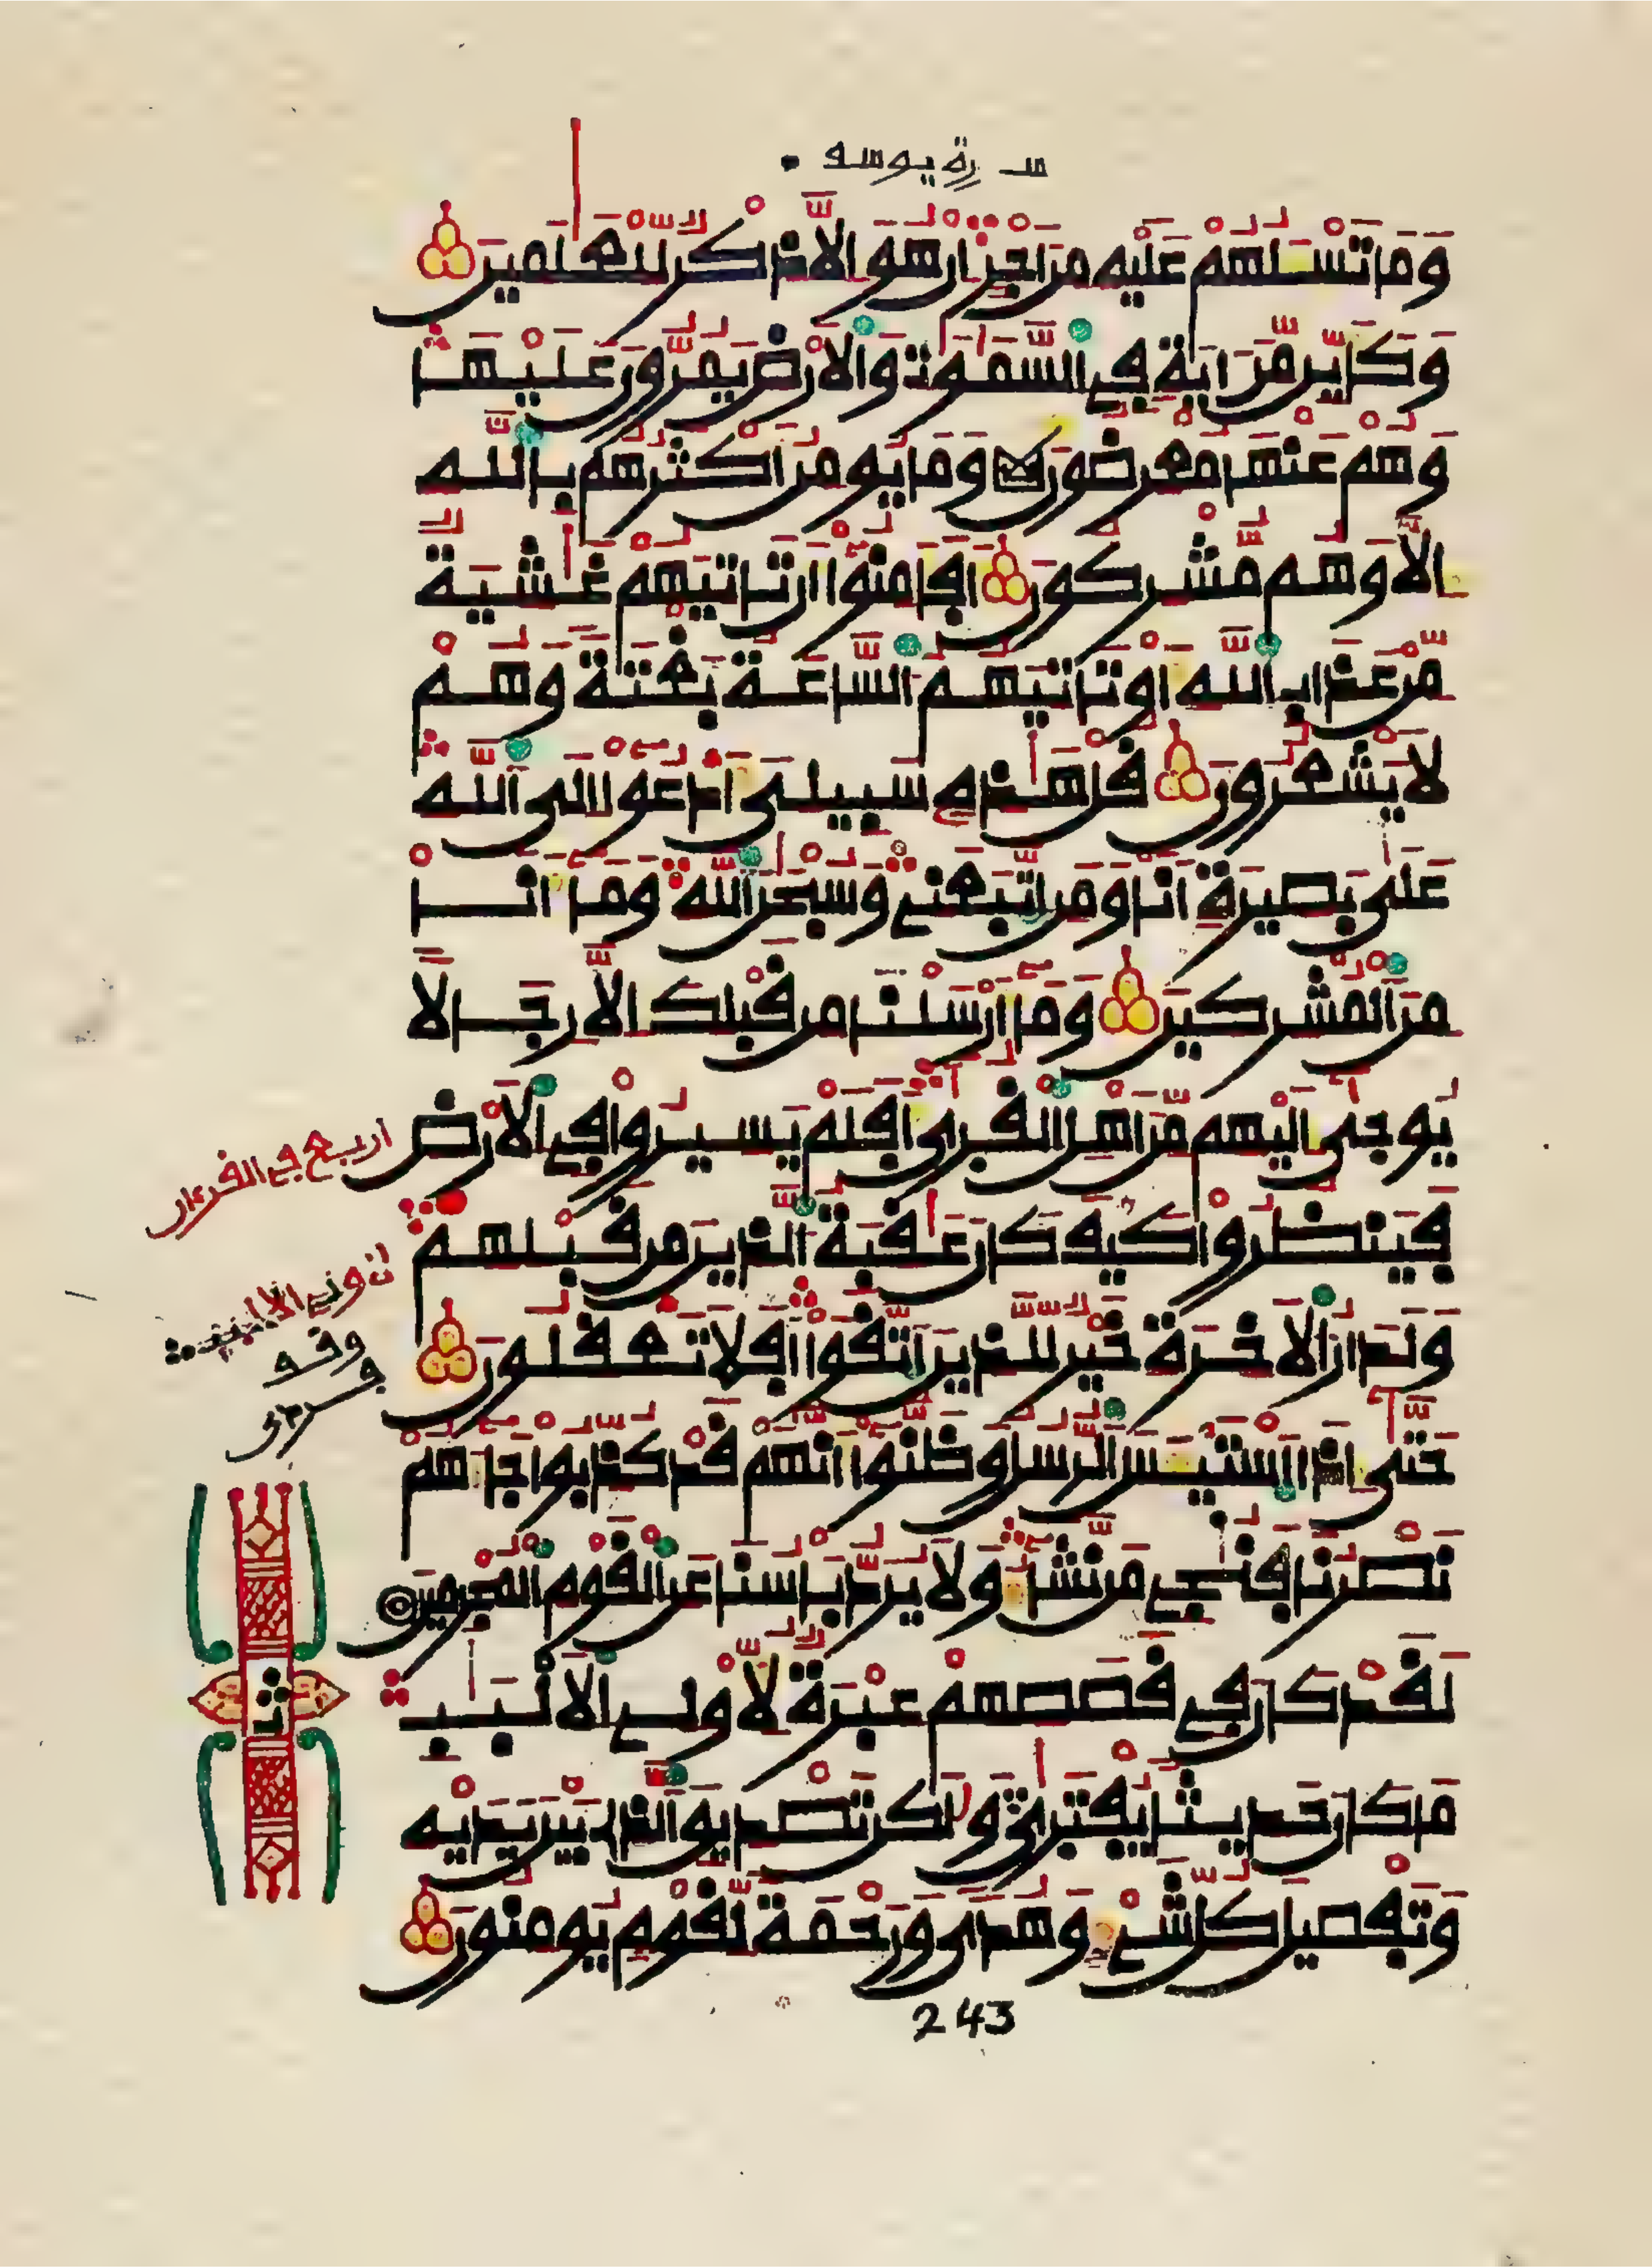 سورة يوسف
وَمَا تَسْـَٔلُهُمْ عَلَيْهِ مِنَ اجْرٍ اِنْ هُوَ إِلَّا ذِكْرٌ لِّلْعَٰلَمِينَ
وَكَأَيِّن مِّنَ ايَةٍ فِي اِ۬لسَّمَٰوَٰتِ وَالَارْضِ يَمُرُّونَ عَلَيْهَا
وَهُمْ عَنْهَا مُعْرِضُونَ وَمَا يُومِنُ أَكْثَرُهُم بِاللَّهِ
إِلَّا وَهُم مُّشْرِكُونَ أَفَأَمِنُوٓاْ أَن تَاتِيَهُمْ غَٰشِيَةٌ
مِّنْ عَذَابِ اِ۬للَّهِ أَوْ تَاتِيَهُمُ اُ۬لسَّاعَةُ بَغْتَةً وَهُمْ
لَا يَشْعُرُونَ قُلْ هَٰذِهِۦ سَبِيلِيَ أَدْعُوٓاْ إِلَى اَ۬للَّهِ
عَلَىٰ بَصِيرَةٍ اَنَا وَمَنِ اِ۪تَّبَعَنِي وَسُبْحَٰنَ اَ۬للَّهِ وَمَآ أَنَا
مِنَ اَ۬لْمُشْرِكِينَ وَمَآ أَرْسَلْنَا مِن قَبْلِكَ إِلَّا رِجَالًا
يُوحَىٰٓ إِلَيْهِم مِّنَ اَهْلِ اِ۬لْقُرَىٰٓ أَفَلَمْ يَسِيرُواْ فِي اِ۬لَارْضِ
فَيَنظُرُواْ كَيْفَ كَانَ عَٰقِبَةُ اُ۬لذِينَ مِن قَبْلِهِمْ
وَلَدَارُ اُ۬لَاخِرَةِ خَيْرٌ لِّلذِينَ اَ۪تَّقَوَاْ اَفَلَا تَعْقِلُونَ
حَتَّىٰٓ إِذَا اَ۪سْتَيْـَٔسَ اَ۬لرُّسُلُ وَظَنُّوٓاْ أَنَّهُمْ قَدْ كُذِّبُواْ جَآءَهُمْ
نَصْرُنَا فَنُـۨجِي مَن نَّشَآءُ وَلَا يُرَدُّ بَأْسُنَا عَنِ اِ۬لْقَوْمِ اِ۬لْمُجْرِمِينَ
لَقَدْ كَانَ فِي قَصَصِهِمْ عِبْرَةٌ لِّأُوْلِي اِ۬لَالْبَٰبِ
مَا كَانَ حَدِيثًا يُفْتَرَىٰ وَلَٰكِن تَصْدِيقَ اَ۬لذِي بَيْنَ يَدَيْهِ
وَتَفْصِيلَ كُلِّ شَيْءٍ وَهُدًى وَرَحْمَةً لِّقَوْمٍ يُومِنُونَ
اربع في القرءان
وقف
243